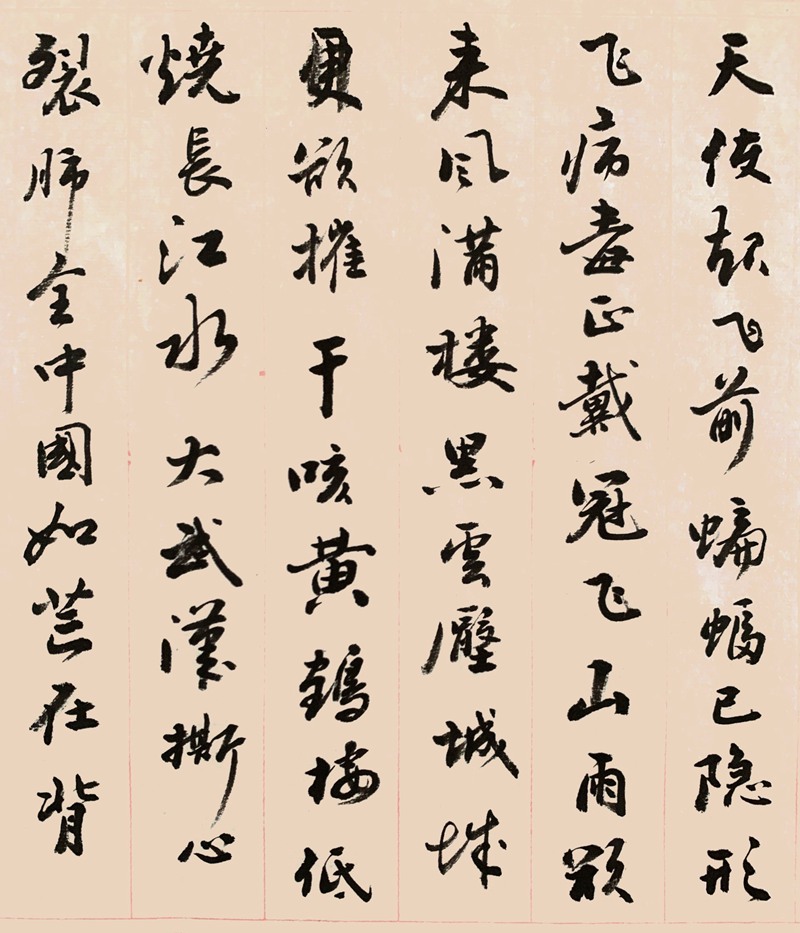 天使起飞前蝙蝠已隐形
飞病毒正戴冠飞山雨欲
来风满楼黑雲壓城城
更欲摧干咳黄鶴楼低
燒長江水大武漢撕心
裂肺全中國如芒在背